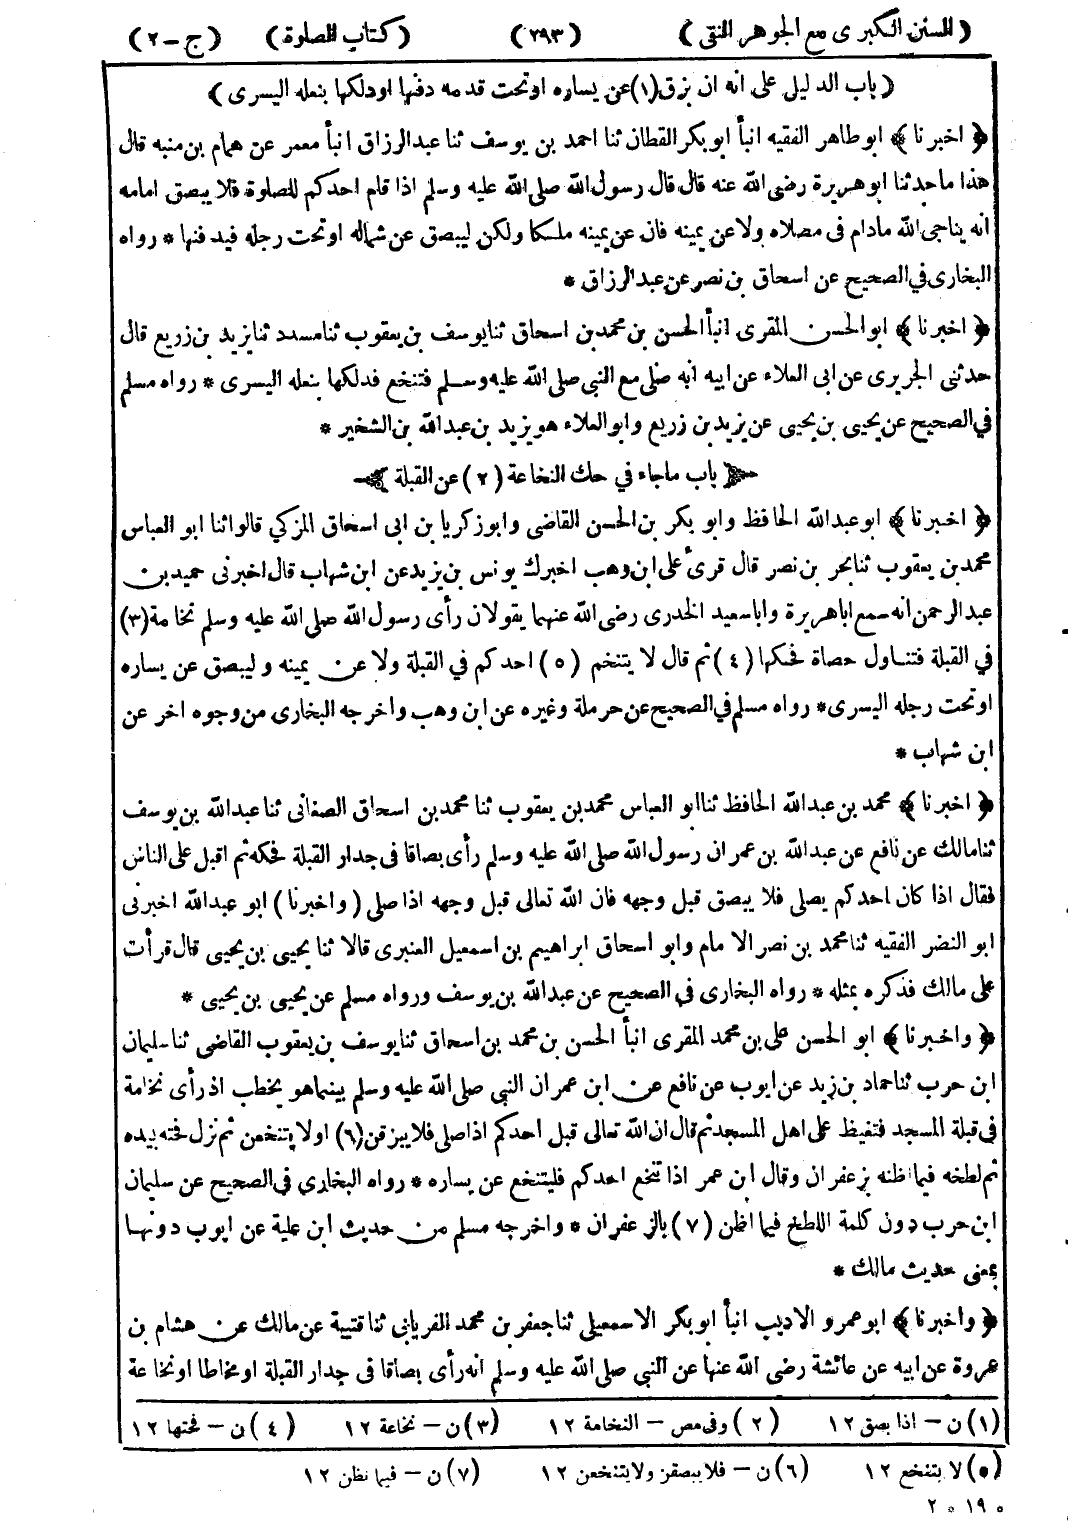 (السنن الكبرى مع الجوهر النقى) (٢٩٣) (كتاب الصلوة) (ج-٢)
(باب الدليل على انه ان بزق(١)عن يساره اوتحت قدمه دفنها اودلكها بنعله اليسرى)
﴿ اخبرنا ﴾ ابوطاهر الفقيه انبأ ابوبكر القطان ثنا احمد بن يوسف ثنا عبدالرزاق انبأ معمر عن همام بن منبه قال
هذا ماحدثنا ابوهريرة رضى الله عنه قال قال رسول الله صلى الله عليه وسلم اذا قام احدكم للصلوة فلا يبصق امامه
انه يناجى الله مادام فى مصلاه ولاعن يمينه فان عن يمينه ملكا ولكن ليبصق عن شماله اوتحت رجله فيدفنها * رواه
البخارى في الصحيح عن اسحاق بن نصر عن عبدالرزاق *
﴿ اخبرنا ﴾ ابوالحسن المقرى انبأ الحسن بن محمد بن اسحاق ثنا يوسف بن يعقوب ثنا مسدد ثنا يزيد بن زريع قال
حدثنى الجريرى عن ابى العلاء عن ابيه انه صلى مع النبى صلى الله عليه وسلم فتنخع فدلكها بنعله اليسرى * رواه مسلم
في الصحيح عن يحيى بن يحيى عن يزيد بن زريع وابوالعلاء هو يزيد بن عبدالله بن الشخير *
باب ماجاء في حك النخاعة (٢) عن القبلة
﴿ اخبرنا ﴾ ابوعبدالله الحافظ وابو بكر بن الحسن القاضى وابوزكريا بن ابى اسحاق المزكي قالوا ثنا ابو العباس
محمد بن يعقوب ثنا بحر بن نصر قال قرئ على ابن وهب اخبرك يونس بن يزيد عن ابن شهاب قال اخبرنى حميد بن
عبدالرحمن انه سمع اباهريرة واباسعيد الخدرى رضى الله عنهما يقولان رأى رسول الله صلى الله عليه وسلم نخامة(٣)
في القبلة فتناول حصاة فحكها (٤) ثم قال لا يتنخم (٥) احدكم في القبلة ولا عن يمينه وليبصق عن يساره
اوتحت رجله اليسرى* رواه مسلم في الصحيح عن حرملة وغيره عن ابن وهب واخرجه البخارى من وجوه اخر عن
ابن شهاب *
﴿ اخبرنا ﴾ محمد بن عبدالله الحافظ ثنا ابو العباس محمد بن يعقوب ثنا محمد بن اسحاق الصغانى ثنا عبدالله بن يوسف
ثنا مالك عن نافع عن عبدالله بن عمر ان رسول الله صلى الله عليه وسلم رأى بصاقا فى جدار القبلة فحكه ثم اقبل على الناس
فقال اذا كان احدكم يصلى فلا يبصق قبل وجهه فان الله تعالى قبل وجهه اذا صلى (واخبرنا) ابو عبدالله اخبرنى
ابو النضر الفقيه ثنا محمد بن نصر الامام وابو اسحاق ابراهيم بن اسمعيل العنبرى قالا ثنا يحيى بن يحيى قال قرأت
على مالك فذكره بمثله * رواه البخارى في الصحيح عن عبدالله بن يوسف ورواه مسلم عن يحيى بن يحيى *
﴿ واخبرنا ﴾ ابو الحسن على بن محمد المقرى انبأ الحسن بن محمد بن اسحاق ثنا يوسف بن يعقوب القاضى ثنا سليمان
ابن حرب ثنا حماد بن زيد عن ايوب عن نافع عن ابن عمر ان النبي صلى الله عليه وسلم بينما هو يخطب اذ رأى نخامة
فى قبلة المسجد فتغيظ على اهل المسجد ثم قال ان الله تعالى قبل احدكم اذا صلى فلا يبزقن(٦) اولا يتنخعن ثم نزل فحته بيده
ثم لطخه فيما اظنه بزعفران وقال ابن عمر اذا تنخع احدكم فليتنخع عن يساره * رواه البخارى في الصحيح عن سليمان
ابن حرب دون كلمة اللطخ فيما اظن (٧) بالزعفران * واخرجه مسلم من حديث ابن علية عن ايوب دونها
بمعنى حديث مالك *
﴿ واخبرنا ﴾ ابوعمرو الاديب انبأ ابوبكر الاسمعيلى ثنا جعفر بن محمد الفريابى ثنا قتيبة عن مالك عن هشام بن
عروة عن ابيه عن عائشة رضى الله عنها عن النبي صلى الله عليه وسلم انه رأى بصاقا فى جدار القبلة او مخاطا او نخاعة
(١) ن - اذا بصق ١٢ (٢) وفى مص - النخامة ١٢ (٣) ن - نخاعة ١٢ (٤) ن - فحتها ١٢
(٥) لا يتنخع ١٢ (٦) ن - فلا يبصقن ولا يتنخعن ١٢ (٧) ن - فيما نظن ١٢
٢٠١٩٠